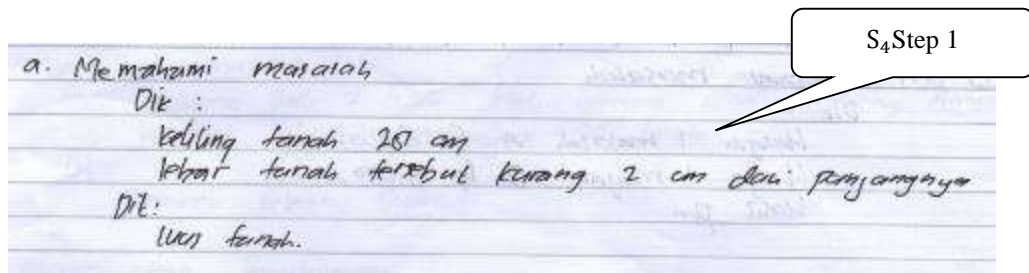 S₄Step 1
a. Memahami masalah
Dik :
keliling tanah 20 cm
lebar tanah tersebut kurang 2 cm dari panjangnya
Dit :
luas tanah.